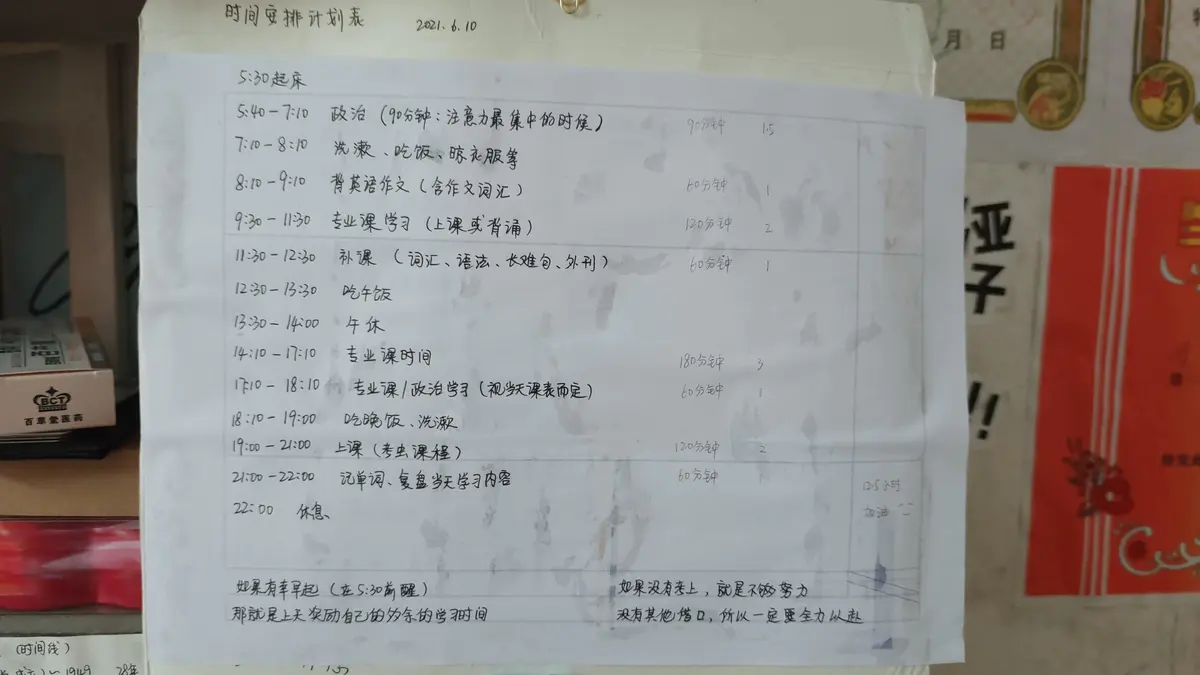 时间安排计划表 2021.6.10
月 日
5:30起床
5:40-7:10 政治(90分钟:注意力最集中的时候) 90分钟 1.5
7:10-8:10 洗漱、吃饭、晾衣服等
8:10-9:10 背英语作文(含作文词汇) 60分钟 1
9:30-11:30 专业课学习(上课或背诵) 120分钟 2
11:30-12:30 补课 (词汇、语法、长难句、外刊) 60分钟 1
12:30-13:30 吃午饭
13:30-14:00 午休
14:10-17:10 专业课时间 180分钟 3
17:10-18:10 专业课/政治学习(视当天课表而定) 60分钟 1
18:10-19:00 吃晚饭、洗漱
19:00-21:00 上课(考虫课程) 120分钟 2
21:00-22:00 记单词、复盘当天学习内容 60分钟
12.5小时
22:00 休息
加油
如果有幸早起(在5:30前醒) 如果没有考上,就是不够努力
那就是上天奖励自己的多余的学习时间 没有其他借口,所以一定要全力以赴
BCT
百草堂医药
子
!!
(时间线)
1949 28年